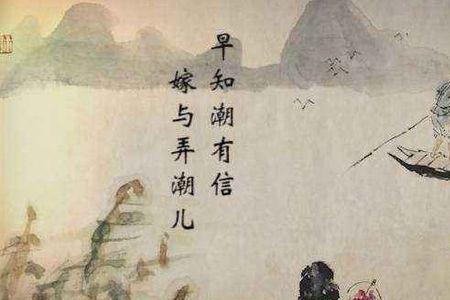 早知潮有信
嫁与弄潮儿